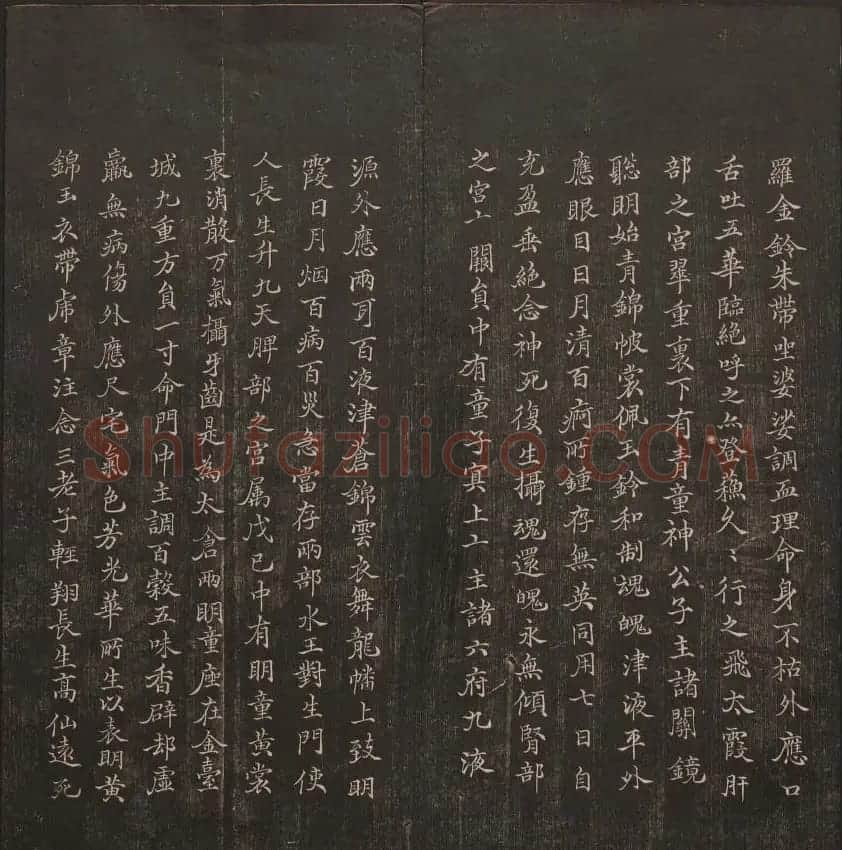 羅金鈴朱帶坐婆娑調血理命身不枯外應口
舌吐五華臨絕呼之亦登蘓久〻行之飛太霞肝
部之宮翠重裏下有青童神公子主諸關鏡
聡明始青錦帔裳佩玉鈴和制魂魄津液平外
應眼目日月清百痾所鍾存無英同用七日自
充盈垂絕念神死復生攝魂還魄永無傾腎部
之宮 闕負中有童子冥上 主諸六府九液
源外應兩耳百液津蒼錦雲衣舞龍幡上致明
霞日月烟百病百災急當存兩部水王對生門使
人長生升九天脾部之宮属戊巳中有明童黄裳
裏消散万氣攝牙齒是為太倉兩明童座在金臺
城九重方負一寸命門中主調百穀五味香辟却虛
羸無病傷外應尺宅氣色芳光華所生以表明黄
錦玉衣帶虎章注念三老子輕翔長生高仙遠死
Shufaziliao.COM